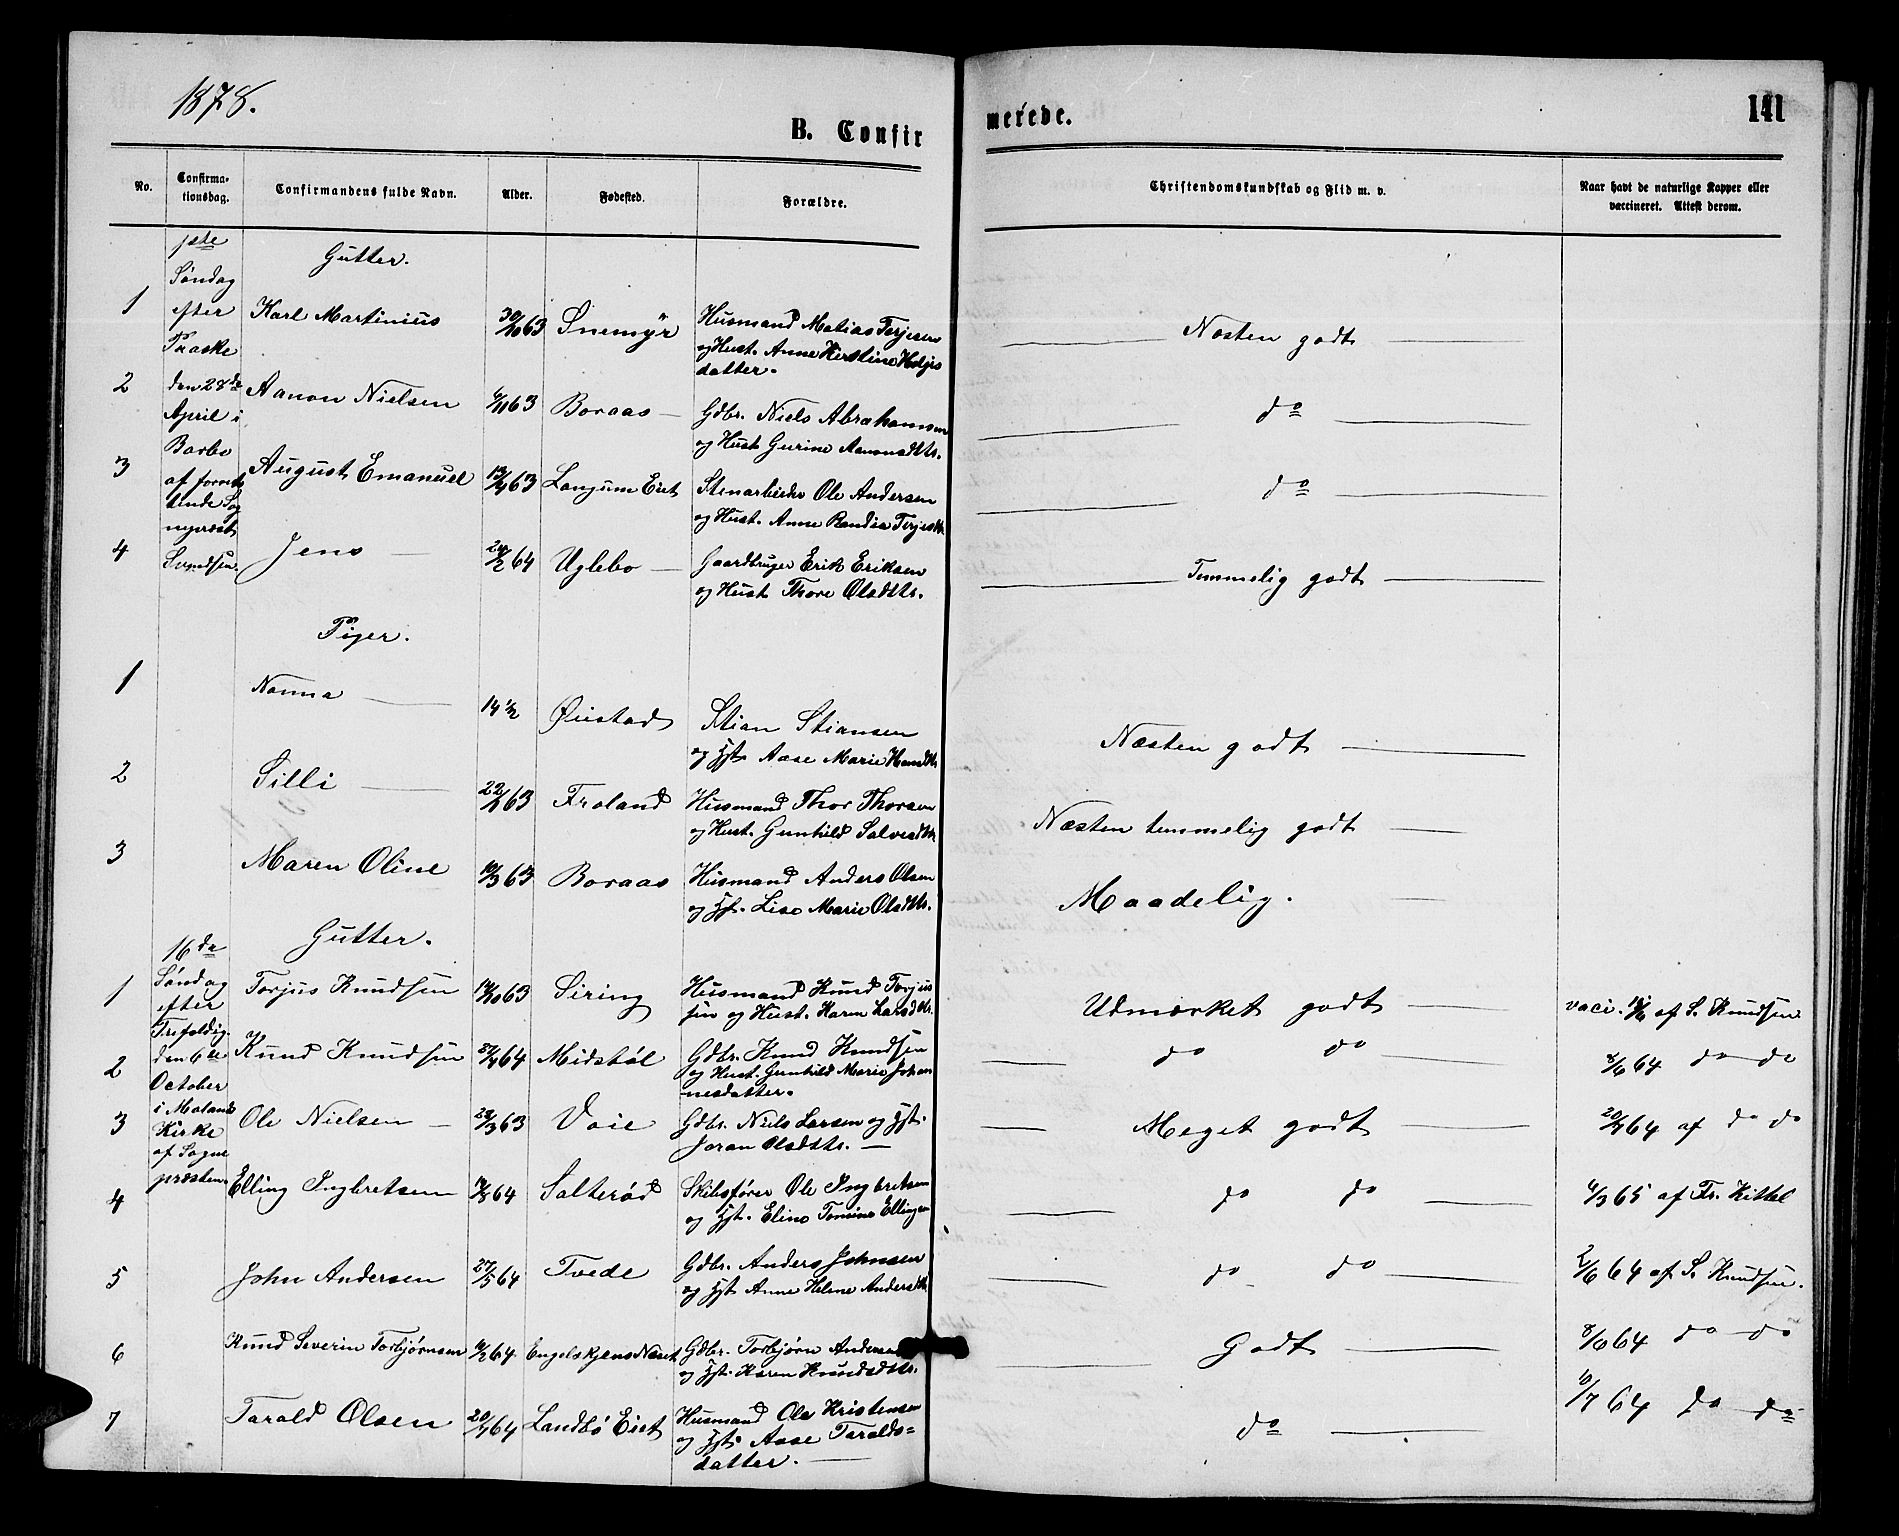 1878.
B. Confir
merede.
141
No.
Confirma-
tionsdag.
Confirmandens fulde Navn.
Alder.
Fødested.
Forældre.
Christendomskundskab og Flid m. v.
Naar havt de naturlige Kopper eller
vaccineret. Attest derom.
1ste
Søndag
efter
Paaske
den 28de
April i
Barbo
Gutter.
1 Karl Martinius 30/10 63 Snemyr Husmand Matias Terjesen
og Hust. Anne Kirstine
datter.
Næsten godt
2 Aanon Nielsen 63 Boraas Gdbr. Niels Abrahamsen
og Hust. Gurine Aanonsdttr.
do
3 August Emanuel 63 Langum Eiet Stenarbeider Ole Andersen
og Hust. Anne Randia Terjesdtr.
do
4 Jens 64 Uglebo Gaardbruger Erik Eriksen
og Hust. Thore Olsdttr.
Temmelig godt
Piger.
1 Nanna 14 1/2 Øiustad Stian Stiansen
og Hst. Aase Marie
Næsten godt
2 Silli 63 Froland Husmand Thor Thorsen
og Hust. Gunhild Salvesdttr.
Næsten temmelig godt
3 Maren Oline 10/3 63 Boraas Husmand Anders Olsen
og Hst. Lise Marie Olsdttr.
Maadelig.
16de
Søndag
efter
Trefoldig.
den 6te
October
i Molands
Kirke
af Sogne
præsten
Gutter.
1 Torjus Knudsen 14/10 63 Siring Husmand Knud Torjus
sen og Hust. Karen Larsdttr.
Udmærket godt
vaci. af S. Knudsen
2 Knud Knudsen 64 Midstøl Gdbr. Knud Knudsen
og Hust. Gunhild Marie Johan
nesdatter.
do do
8/6 64 do do
3 Ole Nielsen 63 Voie Gdbr. Niels Larsen og Hst.
Joran Olsdttr.
Meget godt
20/7 64 af do do
4 Elling Ingbretsen 64 Salterød Skibsfører Ole Ingbretsen
og Hst. Eline Tomine Ellingsen
do do
4/3 65 af Fr. Kittel
5 John Andersen 27/5 64 Tvede Gdbr. Anders Johnsen
og Hst. Anne Helene Andersdtr.
do do
2/6 64 af S. Knudsen.
6 Knud Severin Torbjørnsen 64 Engelskjens Næset Gdbr. Torbjørn Andersen
og Hst. Karen Knudsdttr.
Godt
64 do do
7 Tarald Olsen 64 Landbö Eiet Husmand Ole Kristensen
og Hst. Aase Taralds=
datter.
do
10/7 64 do do